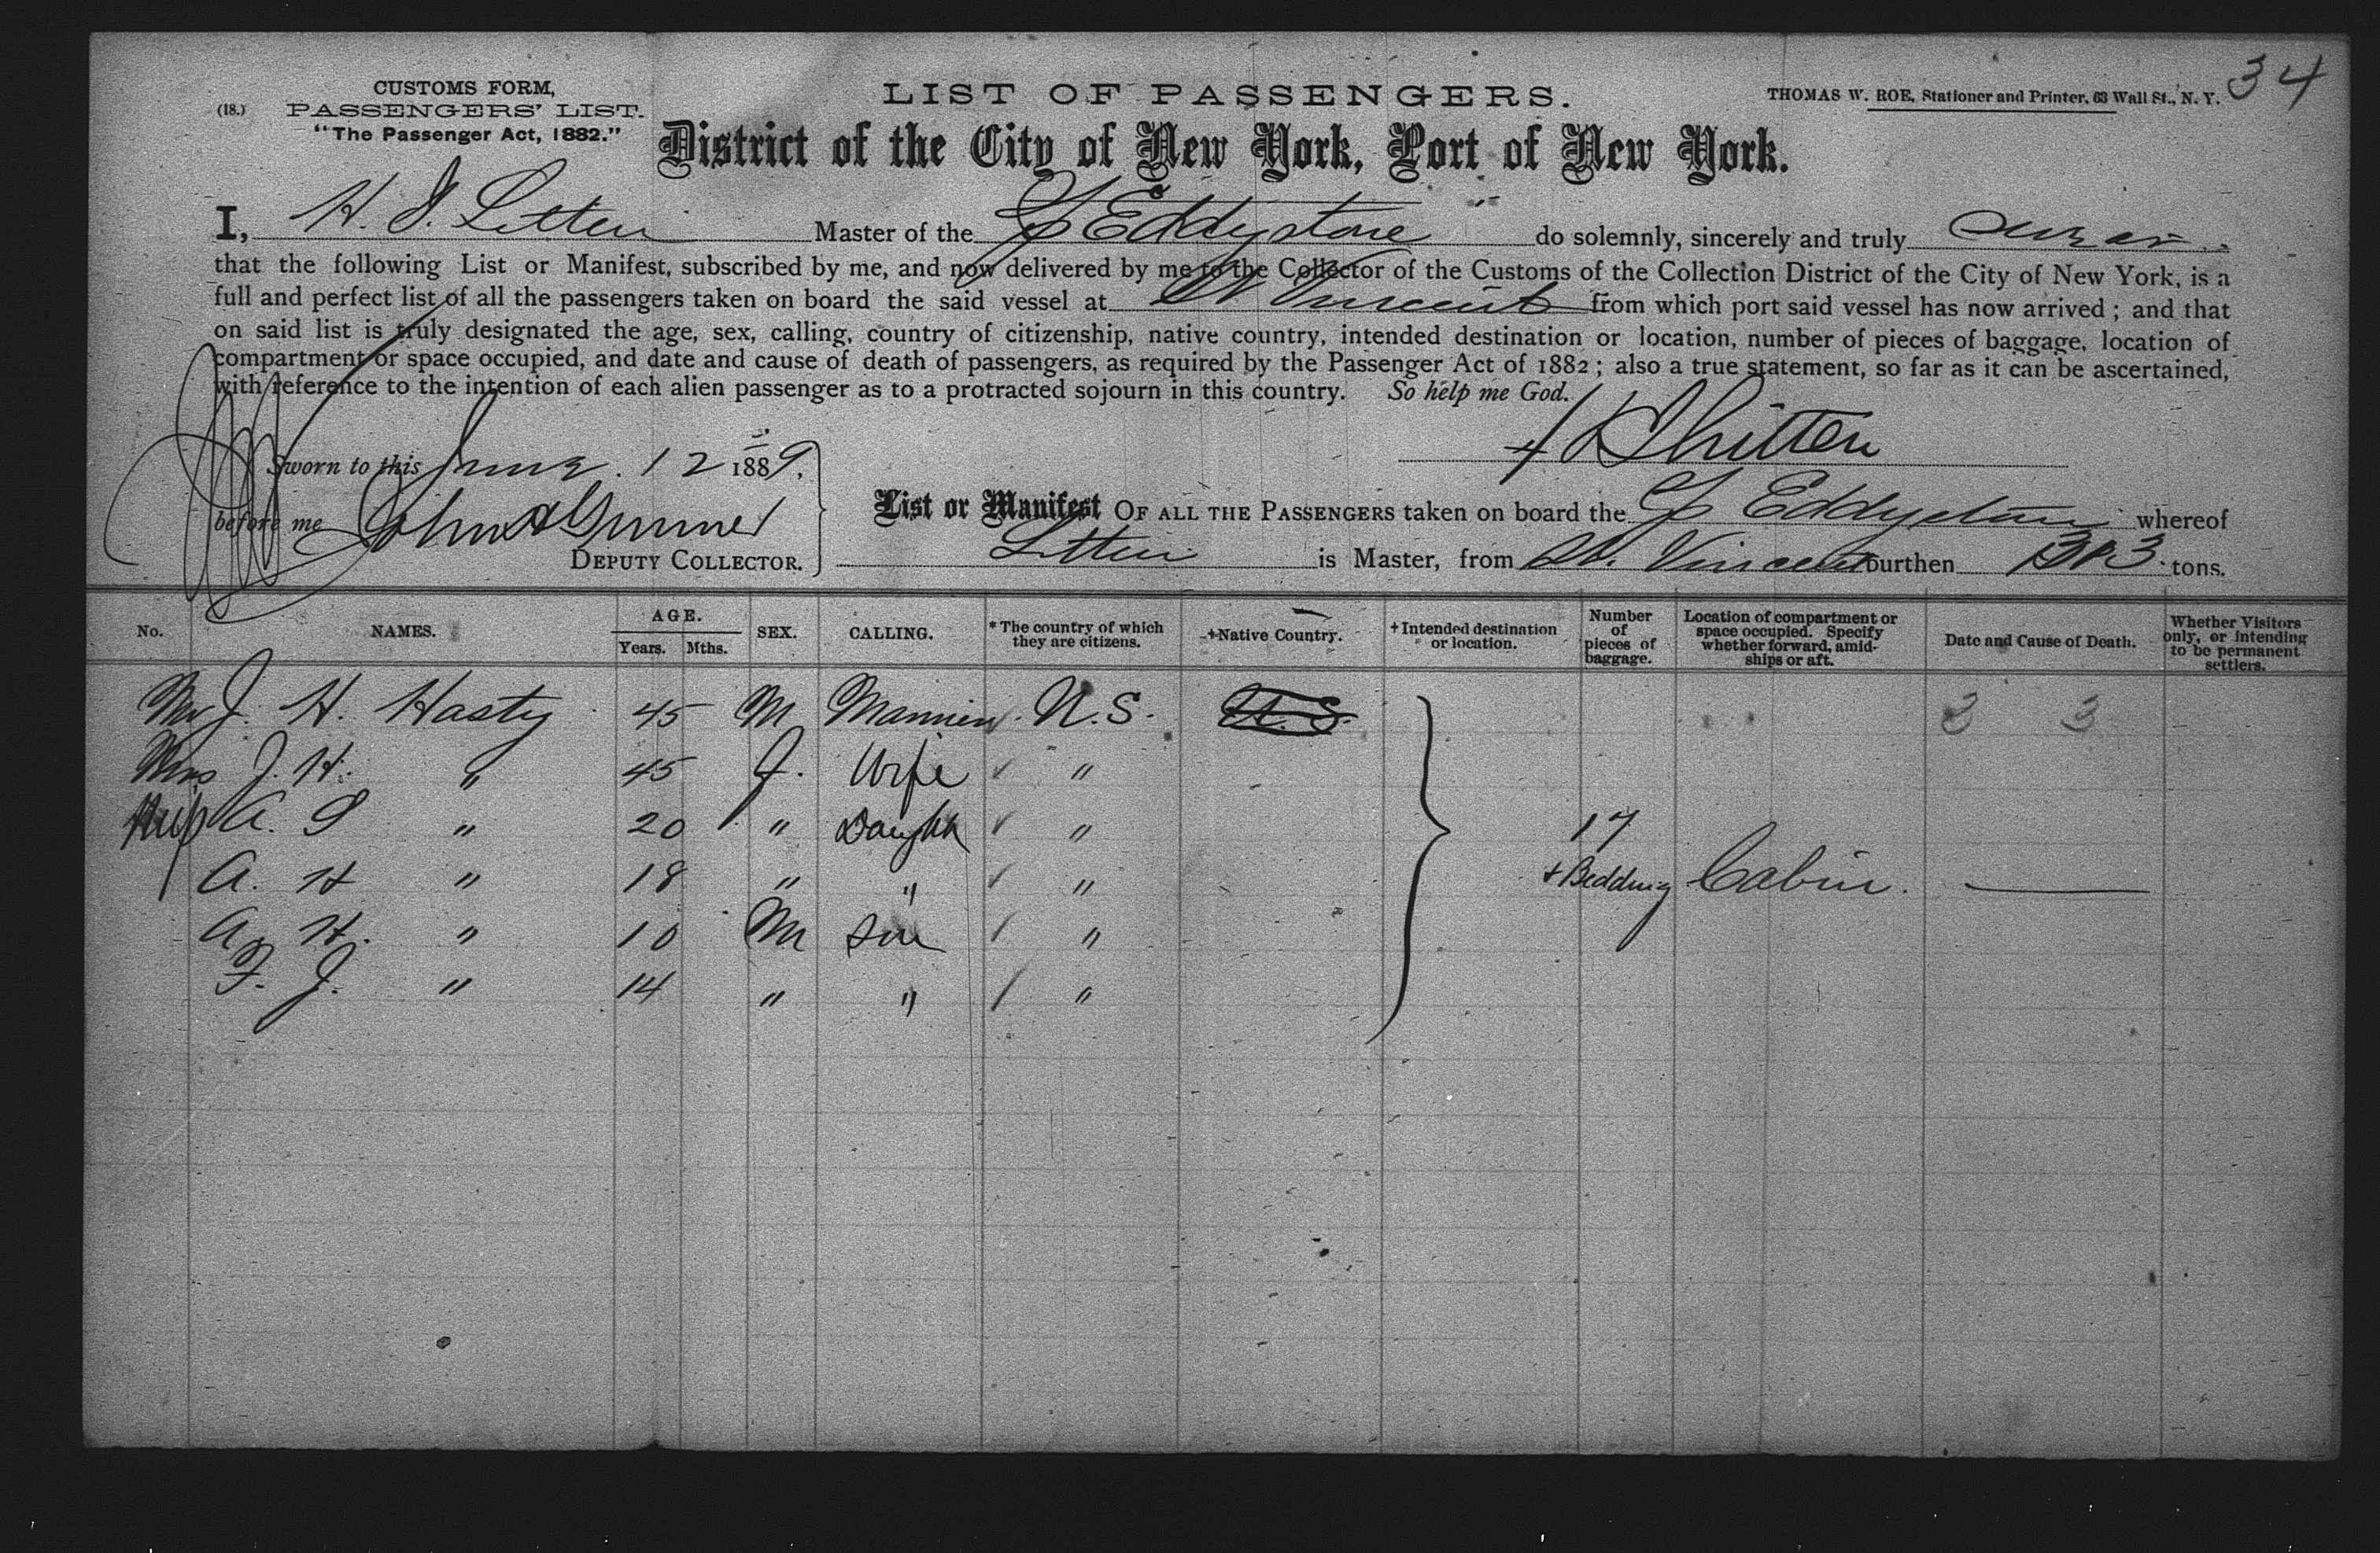 34
CUSTOMS FORM,
(18.) PASSENGERS' LIST.
"The Passenger Act, 1882."
LIST OF PASSENGERS.
THOMAS W. ROE, Stationer and Printer, 63 Wall St., N. Y.
District of the City of New York, Port of New York.
I, Litten Master of the Eddystone do solemnly, sincerely and truly swear
that the following List or Manifest, subscribed by me, and now delivered by me to the Collector of the Customs of the Collection District of the City of New York, is a
full and perfect list of all the passengers taken on board the said vessel at St Vincent from which port said vessel has now arrived; and that
on said list is truly designated the age, sex, calling, country of citizenship, native country, intended destination or location, number of pieces of baggage, location of
compartment or space occupied, and date and cause of death of passengers, as required by the Passenger Act of 1882; also a true statement, so far as it can be ascertained,
with reference to the intention of each alien passenger as to a protracted sojourn in this country. So help me God.
Sworn to this June 12 1889,
before me John
DEPUTY COLLECTOR.
List or Manifest OF ALL THE PASSENGERS taken on board the Eddystone whereof
Litten is Master, from St. Vincent burthen tons.
No. NAMES. AGE. Years. Mths. SEX. CALLING. *The country of which they are citizens. +Native Country. †Intended destination or location. Number of pieces of baggage. Location of compartment or space occupied. Specify whether forward, amidships or aft. Date and Cause of Death. Whether Visitors only, or intending to be permanent settlers.
Mr J. H. Hasty 45 M U.S. U.S. 3 3
Mrs J. H. " 45 f. Wife "
Miss A. " 20 " Daugh "
A. H " 18 " " "
A. H. " 10 M Son "
F. J. " 14 " " "
17
+ Bedding Cabin.